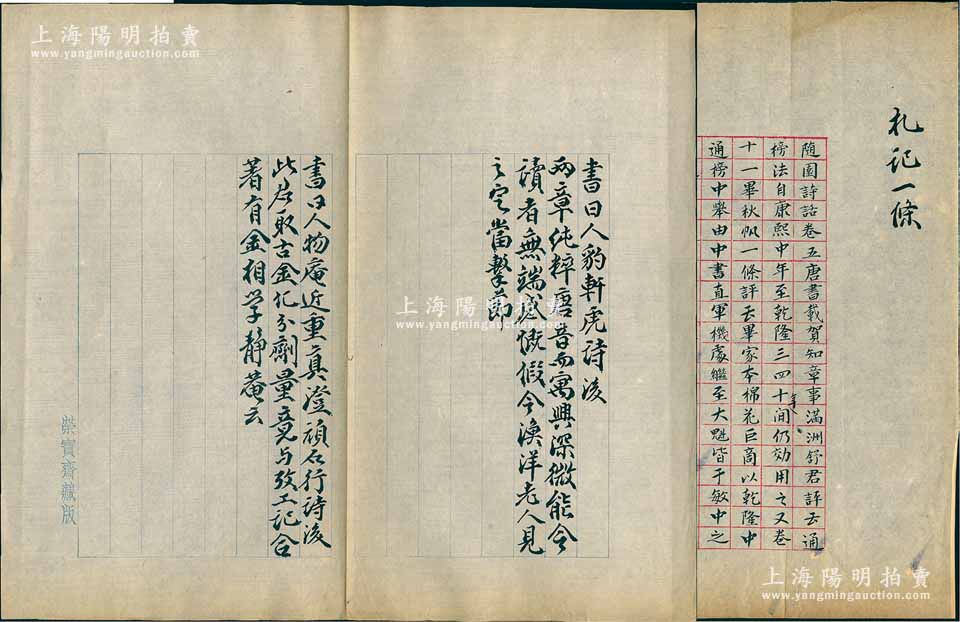 札记一條
随園詩話卷五唐書載賀知章事滿洲舒君評云通
榜法自康熙中年至乾隆三四十年間仍効用之又卷
十一畢秋帆一條評云畢家本棉花巨商以乾隆中
通榜中舉由中書直軍機處繼至大魁皆于敏中之
書日人豹軒虎詩後
兩章純粹唐音而寓興深微能令
讀者無端感慨假令漁洋老人見
之定當擊節
書日人物庵近重真澄頑石行詩後
此君取古金化分劑量竟与攷工記合
著有金相学靜菴云
榮寶齋藏版
上海陽明拍賣
www.yangmingauction.com
上海陽明拍賣
www.yangmingauction.com
上海陽明拍賣
www.yangmingauction.com